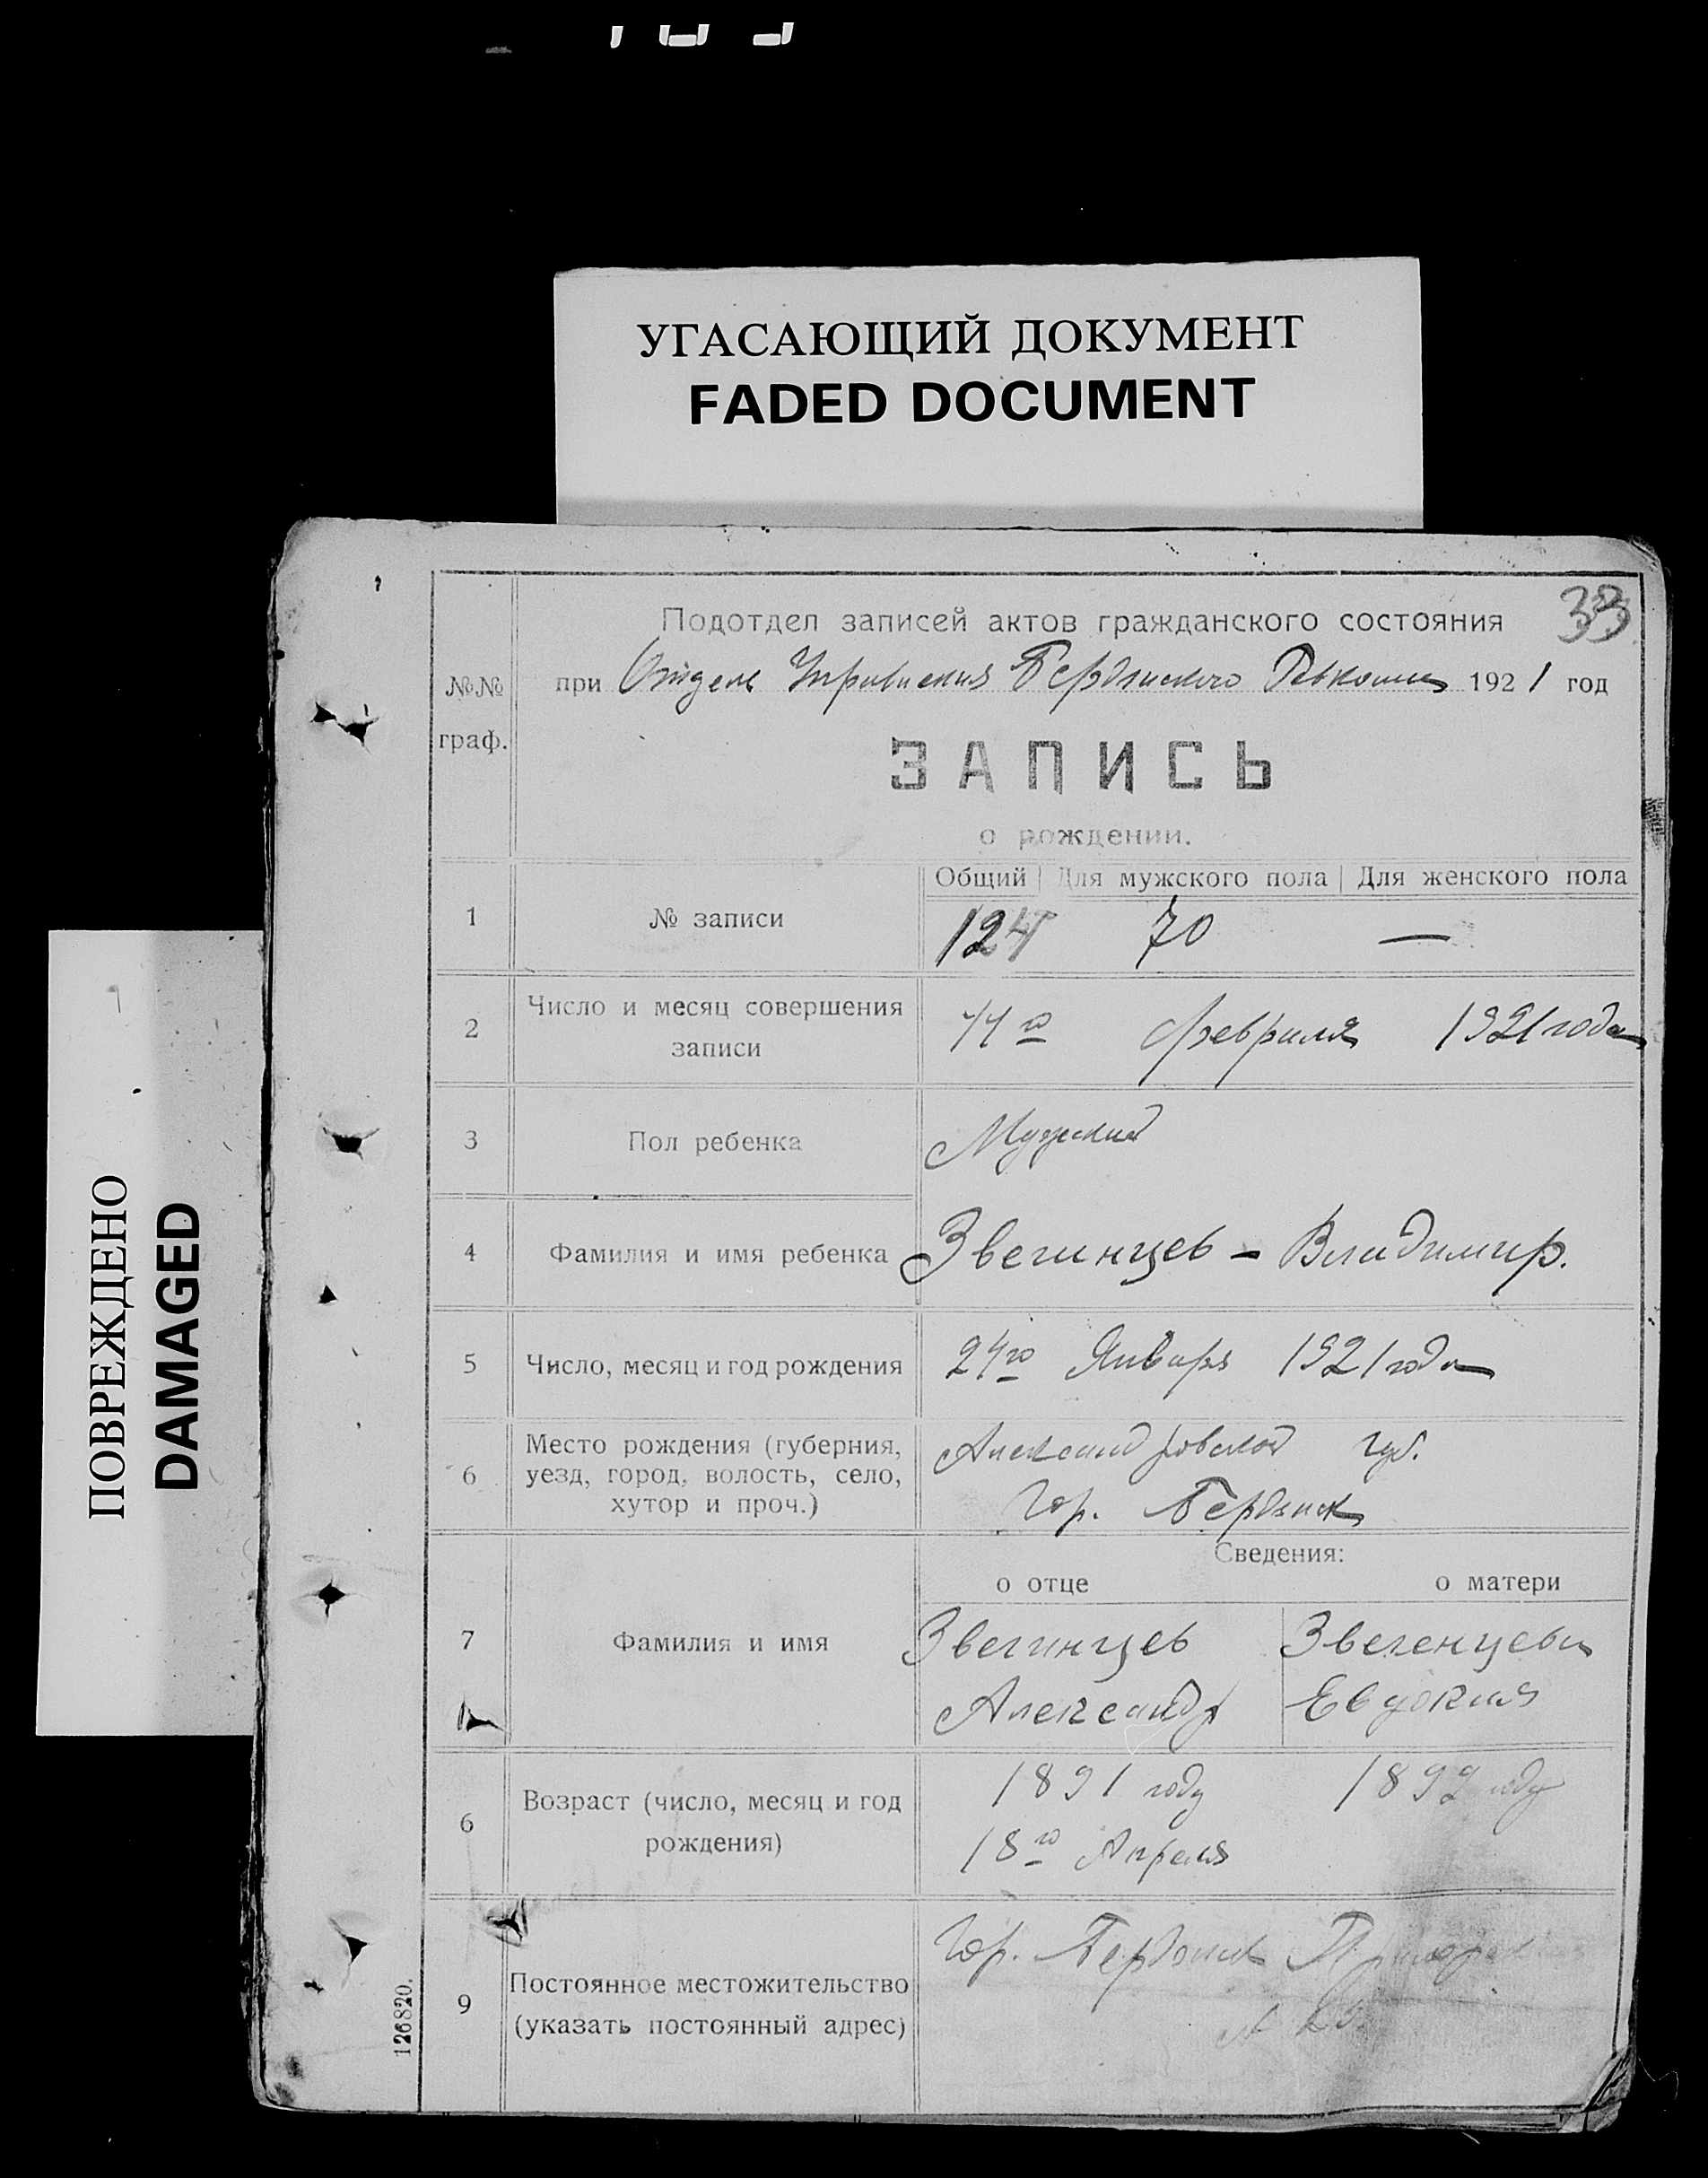 УГАСАЮЩИЙ ДОКУМЕНТ
FADED DOCUMENT
ПОВРЕЖДЕНО
DAMAGED
33
Подотдел записей актов гражданского состояния
№№ граф.
при Отделе Управления Бердянского Ревкома 1921 год
ЗАПИСЬ
о рождении.
Общий Для мужского пола Для женского пола
1 № записи 124 70 —
2 Число и месяц совершения записи 11го февраля 1921 года
3 Пол ребенка Мужской
4 Фамилия и имя ребенка Звегинцев - Владимир.
5 Число, месяц и год рождения 24го Января 1921 года
6 Место рождения (губерния, уезд, город, волость, село, хутор и проч.) Александровской губ.
Гор. Бердянск
Сведения:
о отце о матери
7 Фамилия и имя Звегинцев Звегенцева
Александр Евдокия
6 Возраст (число, месяц и год рождения) 1891 году 1892 году
18го Апреля
9 Постоянное местожительство (указать постоянный адрес) Гор. Бердянск
126820.